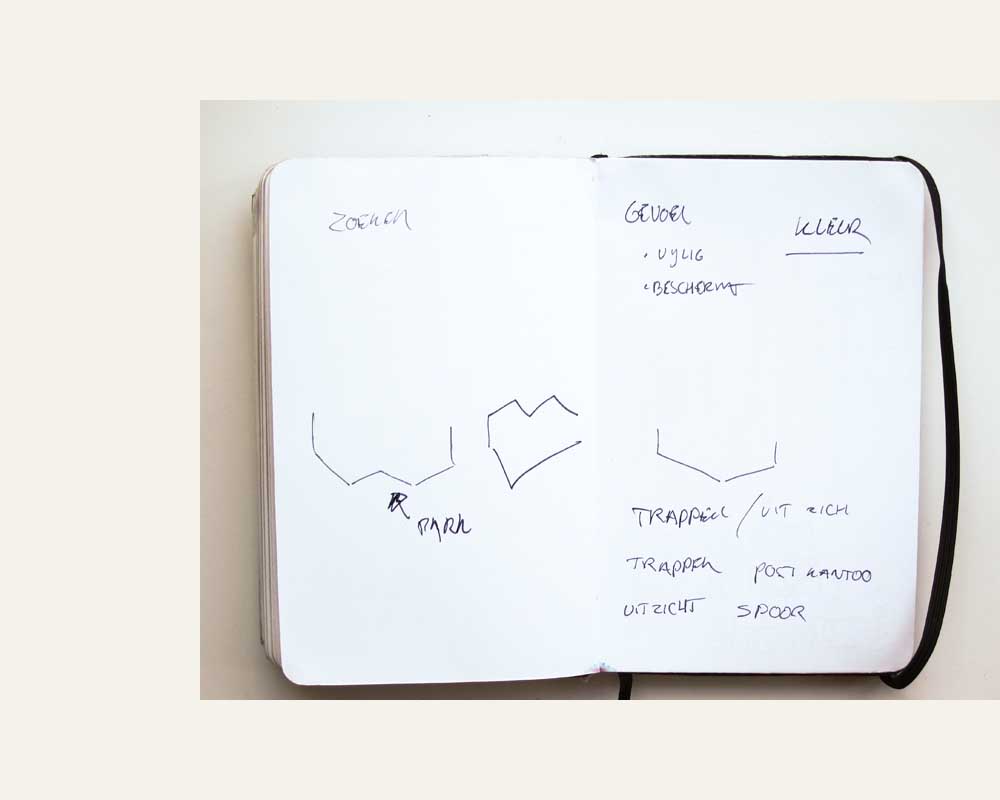 ZOEKEN
PARK
GEVOEL
KLEUR
• VYLIG
• BESCHERMT
TRAPPEN / UIT ZICH
TRAPPEN POST KANTOO
UITZICHT SPOOR